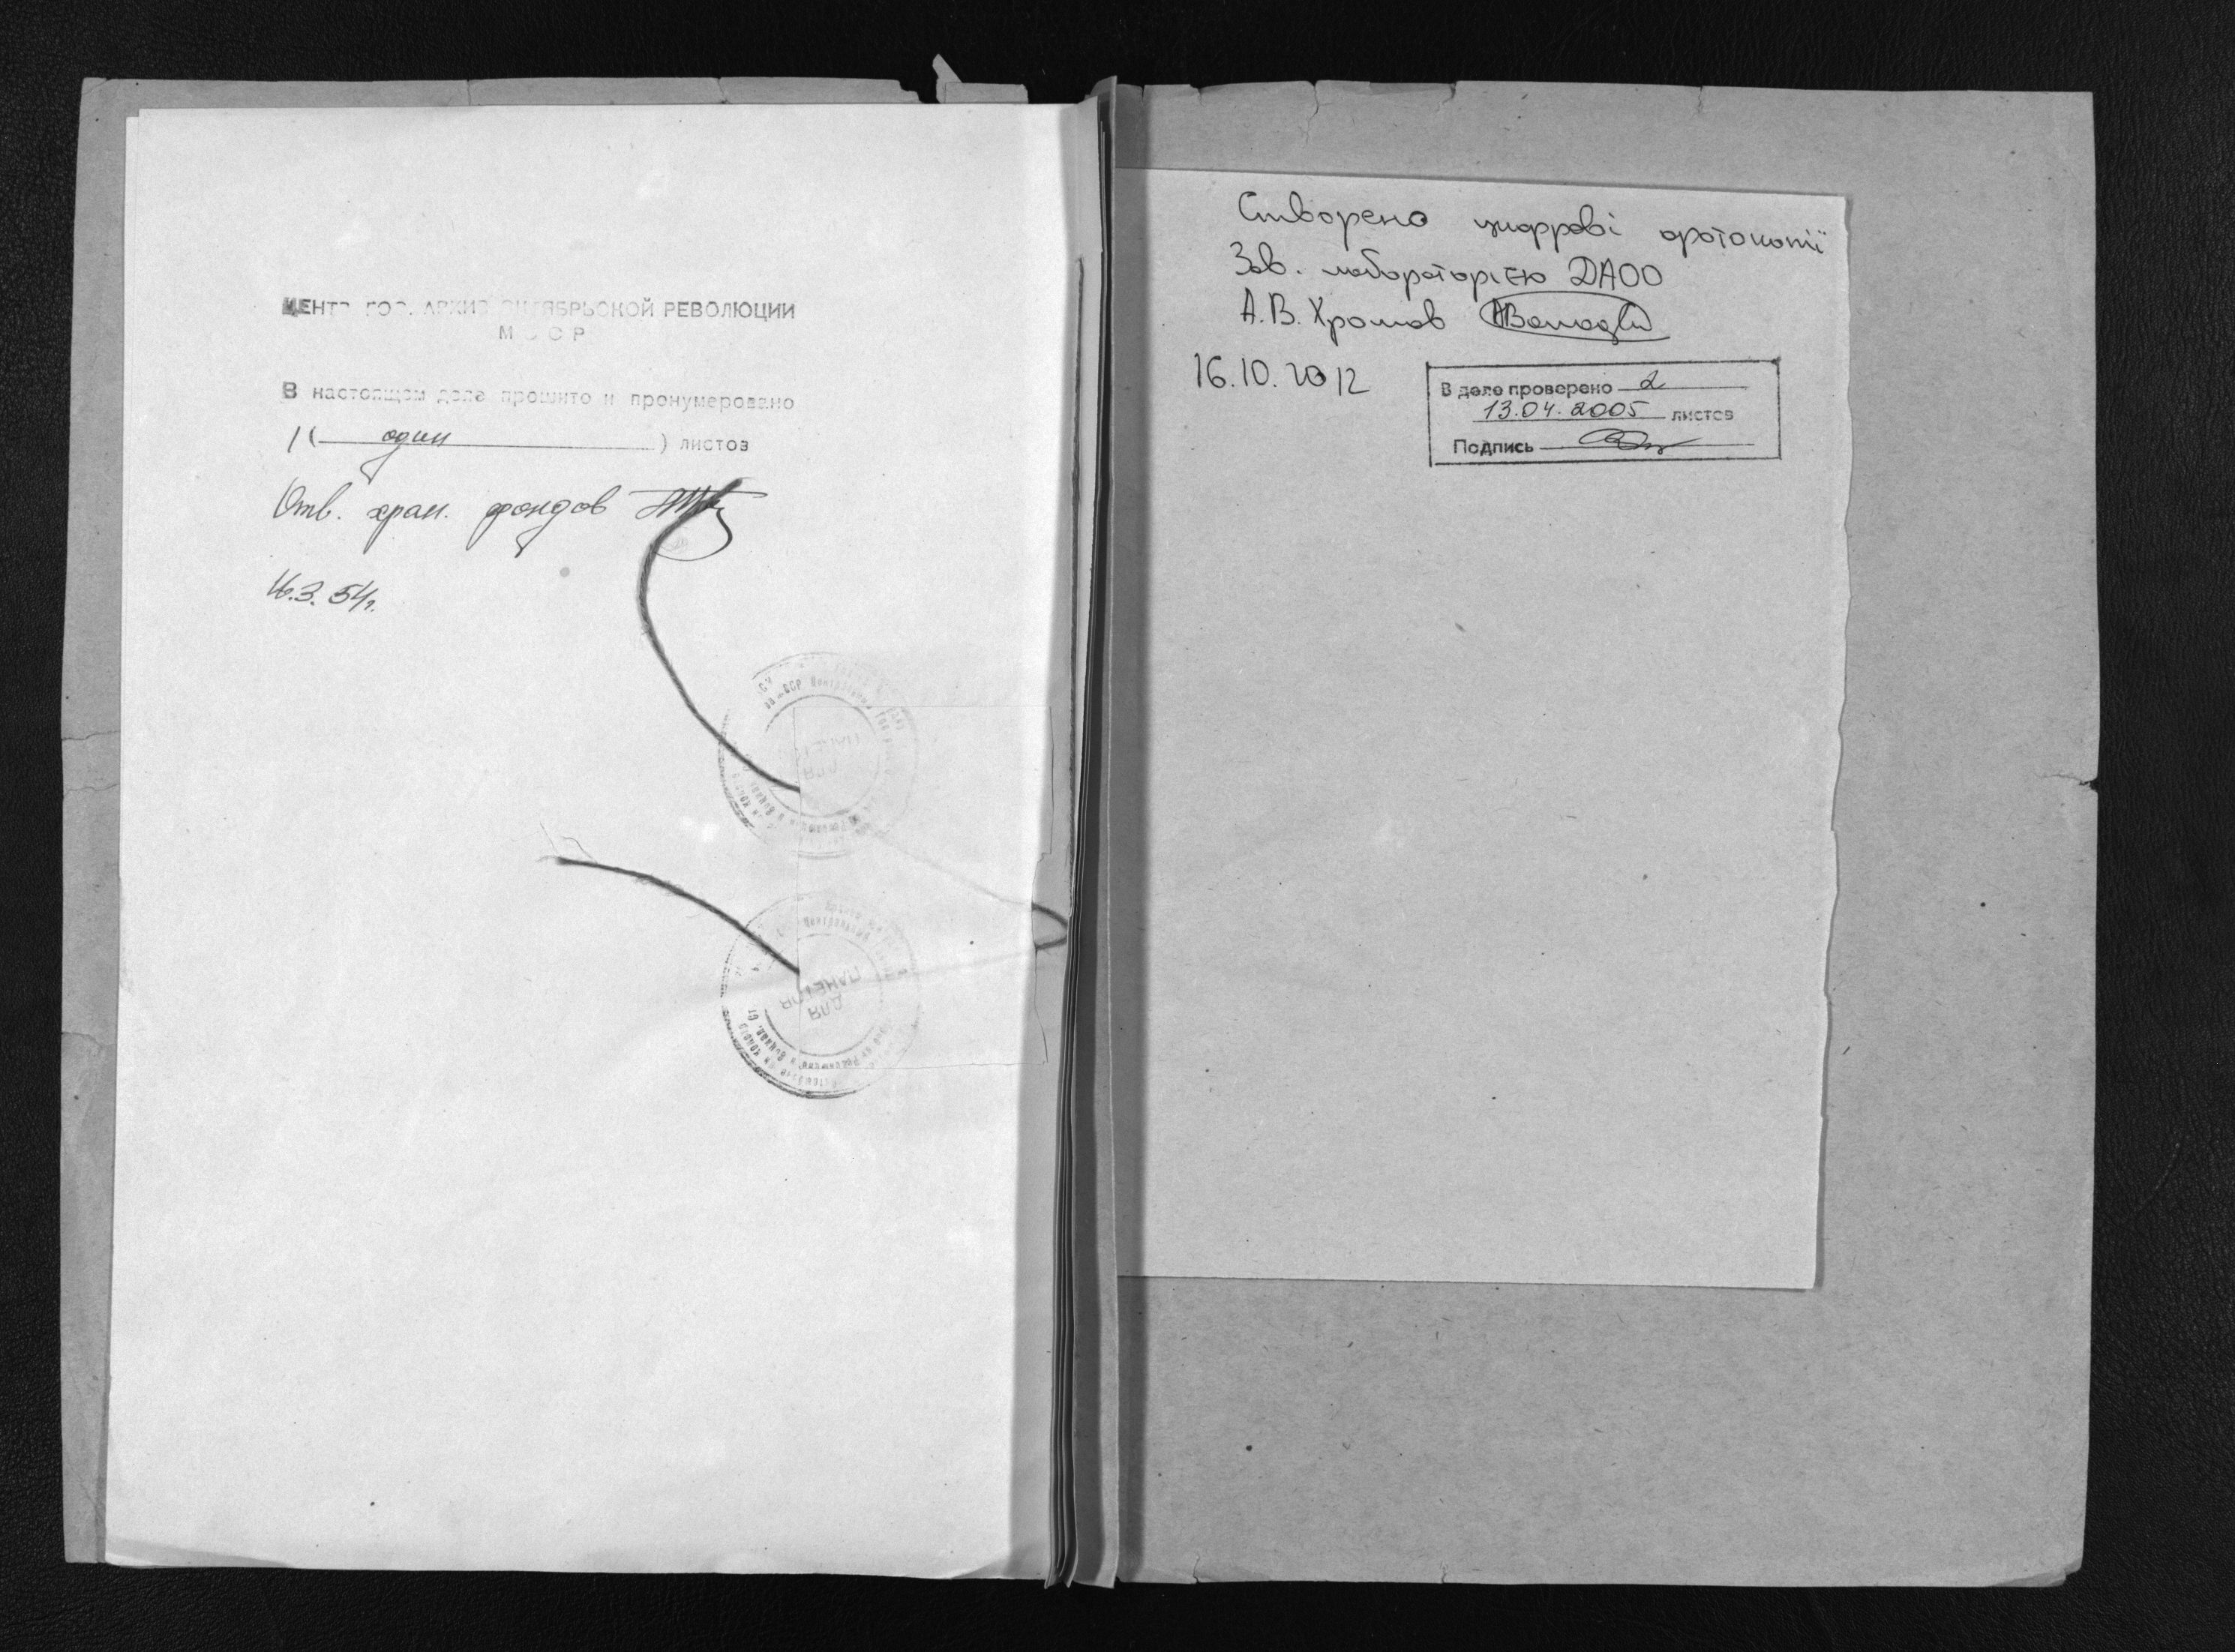 ЦЕНТР. ГОС. АРХИВ ОКТЯБРЬСКОЙ РЕВОЛЮЦИИ
МССР
В настоящем деле прошито и пронумеровано
1 ( один ) листов
Отв. хран. фондов
16.3.54г.
ДЛЯ ПАКЕТОВ
Створено цифрові фотокопії
Зав. лабораторією ДАОО
А.В. Хромов
16.10.2012
В деле проверено 2
13.04.2005 листов
Подпись